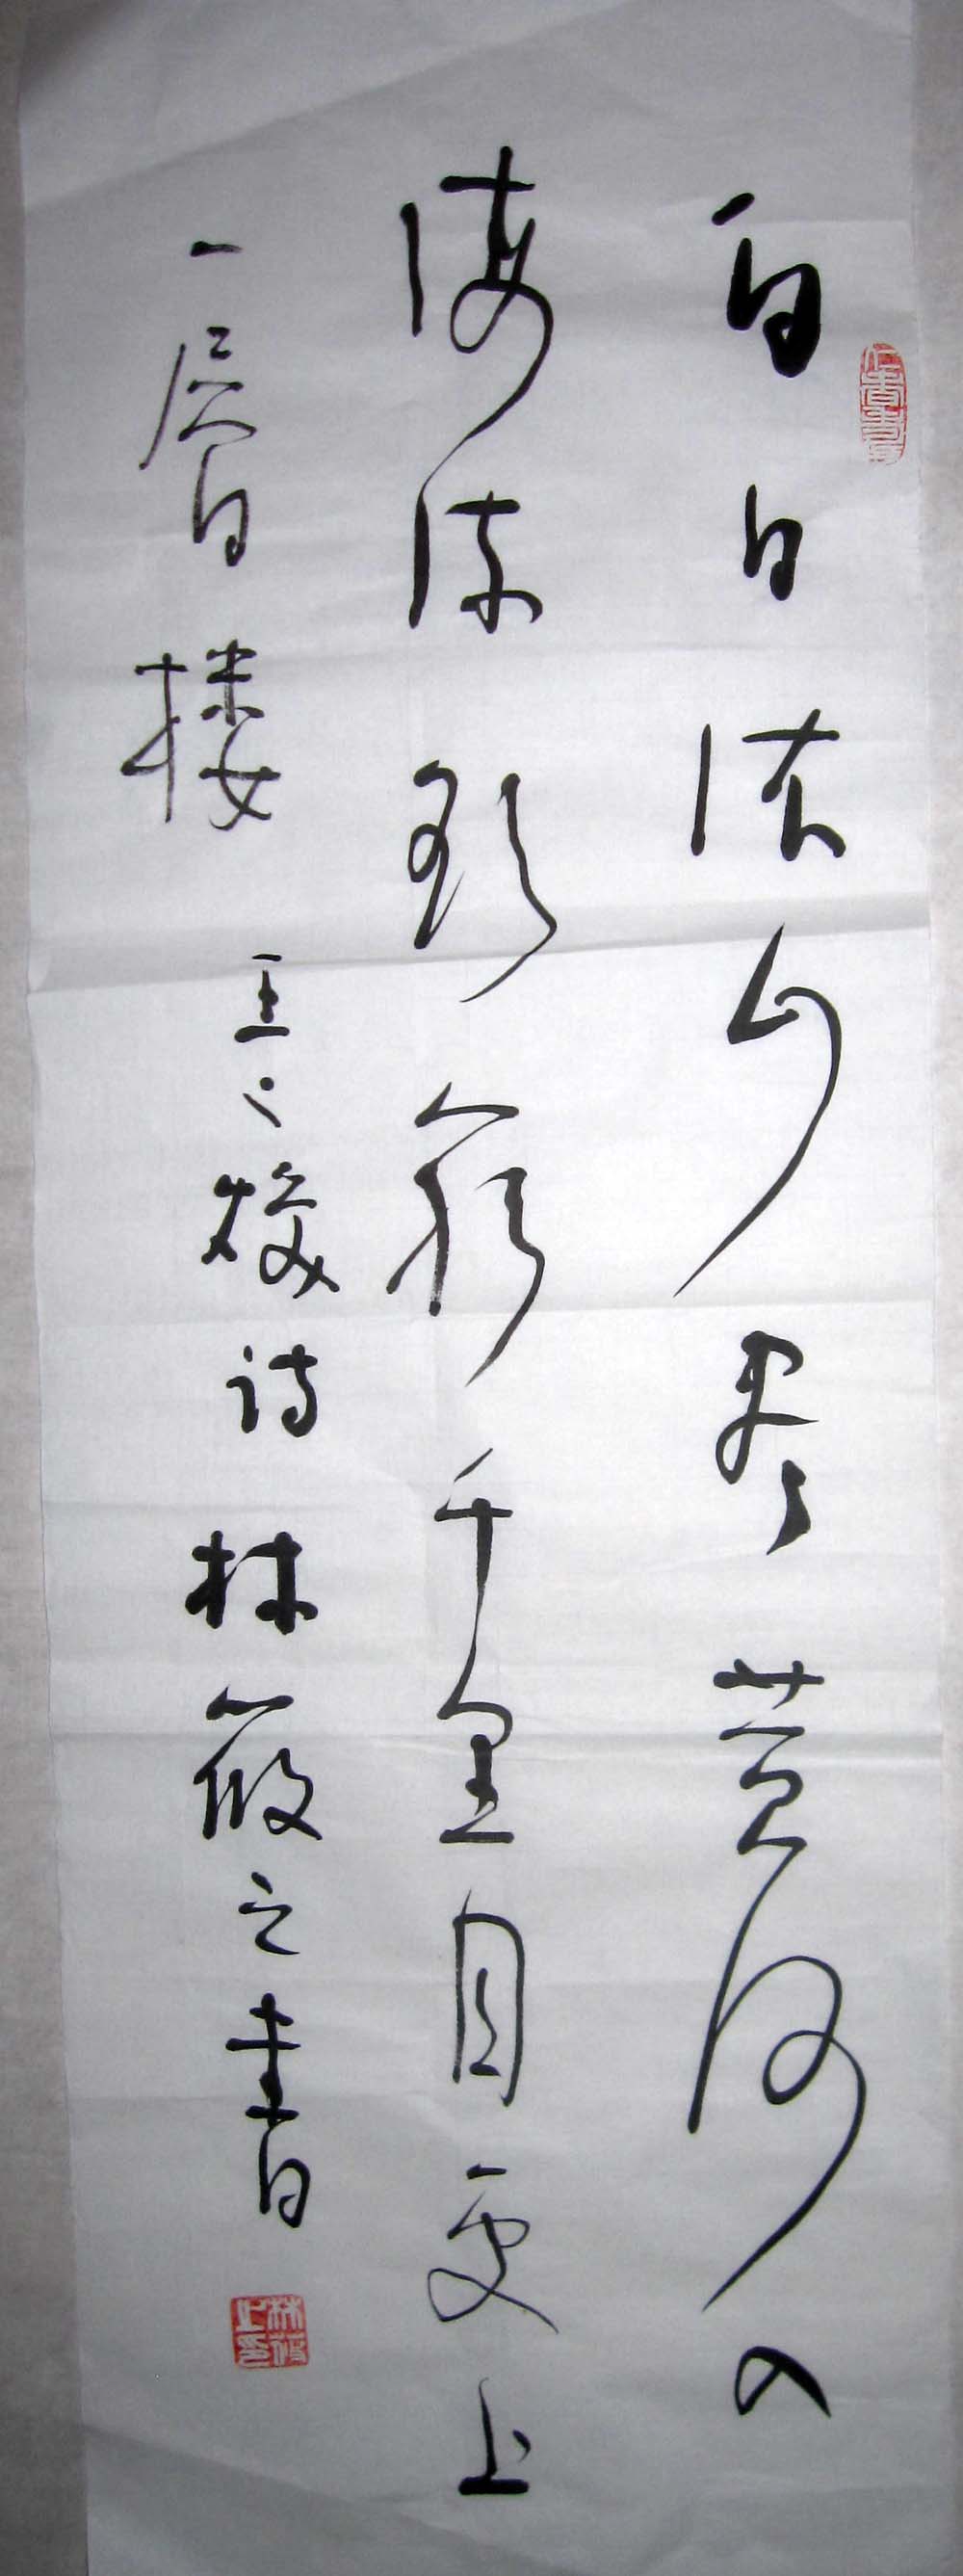 白日依山尽黄河入
海流欲穷千里目更上
一层楼 王之焕诗 林筱之书
林筱之印